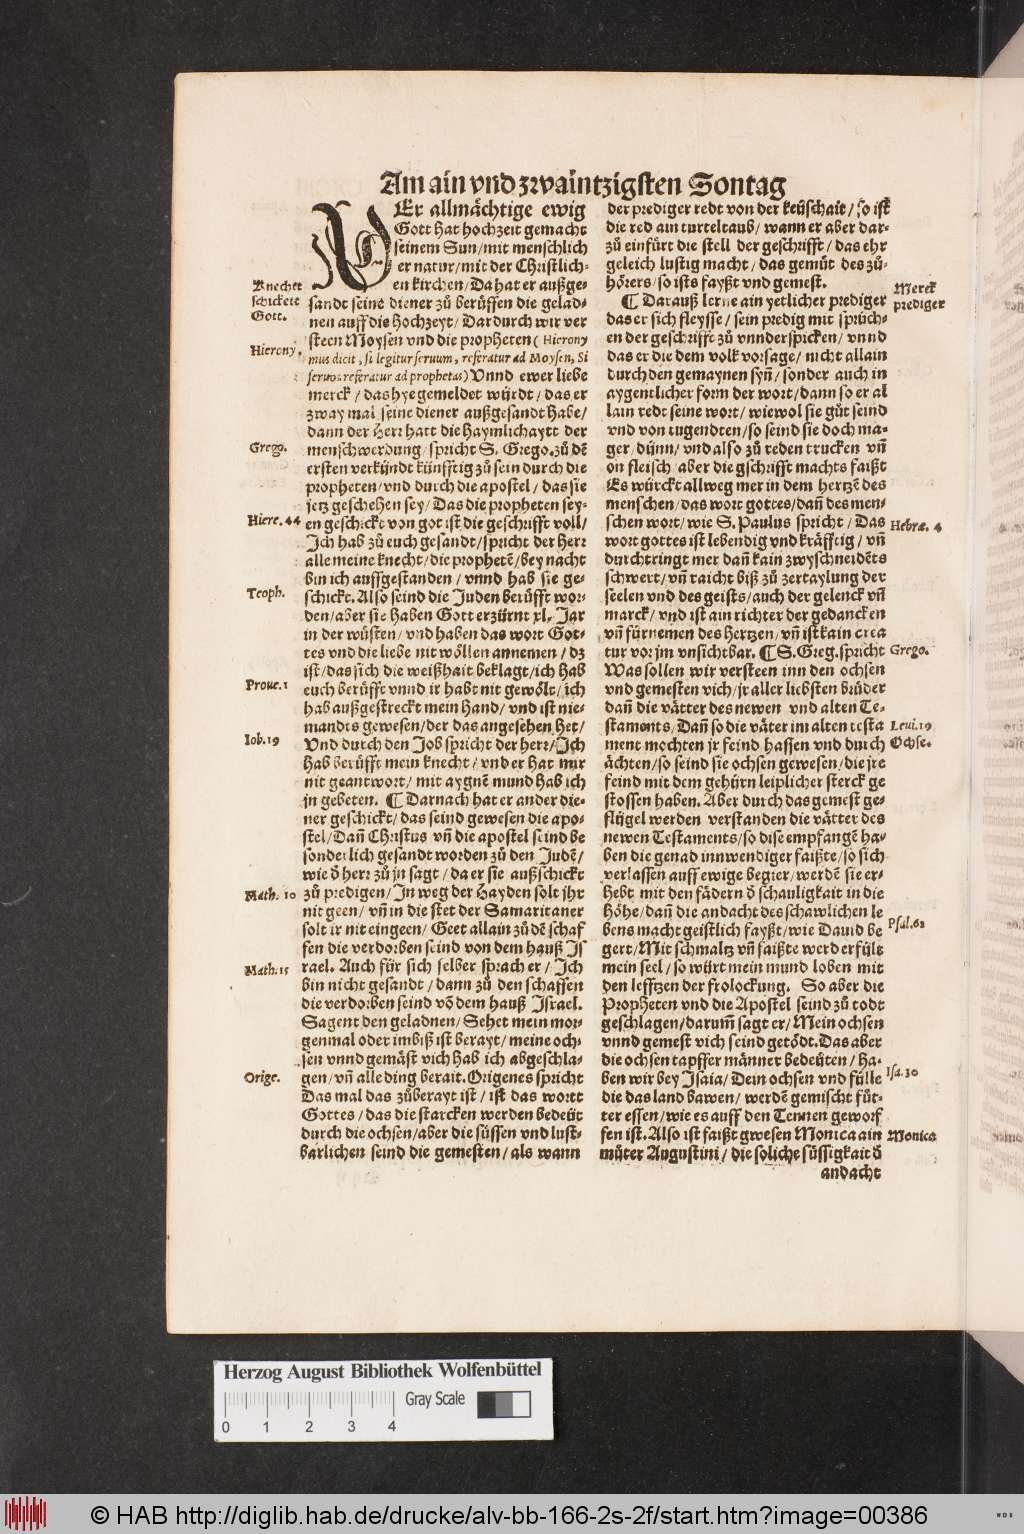 Am ain vnd zwaintzigsten Sontag
DEr allmächtige ewig
Gott hat hochzeit gemacht
seinem Sun/mit menschlich
er natur/mit der Christlich-
en kirchen/Da hat er außge-
sandt seine diener zů berüffen die gelad-
nen auff die hochzeyt/Dardurch wir ver
steen Moysen vnd die propheten (Hierony
mus dicit, si legitur seruum, referatur ad Moysen, Si
seruos referatur ad prophetas) Vnnd ewer liebe
merck/das hye gemeldet würdt/das er
zway mal seine diener außgesandt habe/
dann der herr hatt die haymlichaytt der
menschwerdung/spricht S. Grego.zů dẽ
ersten verkündt künfftig zů sein durch die
propheten/vnd durch die apostel/das sie
jetz geschehen sey/Das die propheten sey-
en geschickt von got ist die geschrifft voll/
Ich hab zů euch gesandt/spricht der herr
alle meine knecht/die prophetẽ/bey nacht
bin ich auffgestanden/vnnd hab sie ge-
schickt. Also seind die Juden berüfft wor-
den/aber sie haben Gott erzürnt xl. Jar
in der wüsten/vnd haben das wort Got-
tes vnd die liebe nit wöllen annemen/dz
ist/das sich die weißhait beklagt/ich hab
euch berüfft vnnd ir habt nit gewölt/ich
hab außgestreckt mein hand/vnd ist nie-
mandts gewesen/der das angesehen het/
Vnd durch den Job spricht der herr/Ich
hab berüfft mein knecht/vnd er hat mir
nit geantwort/mit aygnẽ mund hab ich
jn gebeten. ¶ Darnach hat er ander die-
ner geschickt/das seind gewesen die apo-
stel/Dañ Christus vñ die apostel seind be
sonderlich gesandt worden zů den Judẽ/
wie d̃ herr zů jn sagt/da er sie außschickt
zů predigen/In weg der Hayden solt jhr
nit geen/vñ in die stet der Samaritaner
solt ir nit eingeen/Geet allain zů dẽ schaf
fen die verdorben seind von dem hauß Is
rael. Auch für sich selber sprach er/Ich
bin nicht gesandt/dann zů den schaffen
die verdorben seind võ dem hauß Israel.
Sagent den geladnen/Sehet mein mor-
genmal oder imbiß ist berayt/meine och-
sen vnnd gemäst vich hab ich abgeschla-
gen/vñ alle ding berait. Origenes spricht
Das mal das zůberayt ist/ist das wortt
Gottes/das die starcken werden bedeüt
durch die ochsen/aber die süssen vnd lust-
barlichen seind die gemesten/als wann
Knechet
schickete
Gott.
Hierony.
Grego.
Hiere. 44
Teoph.
Proue.1
Iob.19
Math. 10
Math.15
Orige.
der prediger redt von der keüschait/So ist
die red ain turteltaub/wann er aber dar-
zů einfürt die stell der geschrifft/das ehr
geleich lustig macht/das gemüt des zů-
hörers/so ists fayßt vnd gemest.
¶ Darauß lerne ain yetlicher prediger
das er sich fleysse/sein predig mit sprüch-
en der geschrifft zů vnnderspicken/vnnd
das er die dem volk vorsage/nicht allain
durch den gemaynen syñ/sonder auch in
aygentlicher form der wort/dann so er al
lain redt seine wort/wiewol sie gůt seind
vnd von tugendten/so seind sie doch ma-
ger/dünn/vnd also zů reden trucken vñ
on fleisch/aber die gschrifft machts faißt
Es würckt allweg mer in dem hertzẽ des
menschen/das wort gottes/dañ des men-
schen wort/wie S. Paulus spricht/Das
wort gottes ist lebendig vnd kräfftig/vñ
durchtringt mer dañ kain zwyschneidẽts
schwert/vñ raicht biß zů zertaylung der
seelen vnd des geists/auch der gelenck vñ
marck/vnd ist ain richter der gedancken
vñ fürnemen des hertzen/vñ ist kain crea
tur vor jm vnsichtbar. ¶ S.Greg.spricht
Was sollen wir versteen inn den ochsen
vnd gemesten vich/jr aller liebsten brüder
dañ die vätter des newen vnd alten Te-
staments/Dañ so die väter im alten testa
ment mochten jr feind hassen vnd durch
ächten/so seind sie ochsen gewesen/die jre
feind mit dem gehürn leiplicher sterck ge
stossen haben. Aber durch das gemest ge-
flügel werden verstanden die vätter des
newen Testaments/so dise empfangẽ ha-
ben die genad innwendiger faißte/so sich
verlassen auff ewige begirer/werdẽ sie er-
hebt mit den fädern d̃ schauligkait in die
höhe/dañ die andacht des schawlichen le
bens macht geistlich fayßt/wie Dauid be
gert/Mit schmaltz vñ faißte werd erfült
mein seel/so würt mein mund loben mit
den lefftzen der frolockung. So aber die
Propheten vnd die Apostel seind zů todt
geschlagen/darum̃ sagt er/Mein ochsen
vnnd gemest vich seind getödt. Das aber
die ochsen tapffer männer bedeüten/ha-
ben wir bey Isaia/Dein ochsen vnd fülle
die das land bawen/werdẽ gemischt füt-
ter essen/wie es auff den Tennen geworf
fen ist. Also ist faißt gwesen Monica ain
můter Augustini/die soliche süssigkait d̃
andacht
Merck
prediger
Hebræ. 4
Grego.
Leui.19
Ochse.
Psal.62
Isa.30
Monica
Herzog August Bibliothek Wolfenbüttel
Gray Scale
0 1 2 3 4
© HAB http://diglib.hab.de/drucke/alv-bb-166-2s-2f/start.htm?image=00386